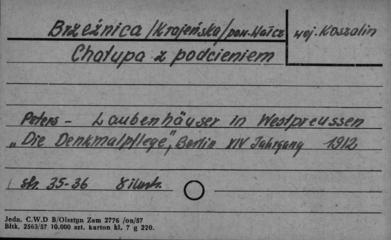 Brzeźnica /Krajeńska/ pow. Wałcz woj. Koszalin
Chałupa z podcieniem
Peters - Laubenhäuser in Westpreussen
„Die Denkmalpflege", Berlin XIV Jahrgang 1912
str. 35-36 8 ilustr.
Jedn. C.W.D B/Olsztyn Zam 2776 /on/57
Błtk. 2563/57 10.000 szt. karton kl. 7 g 220.